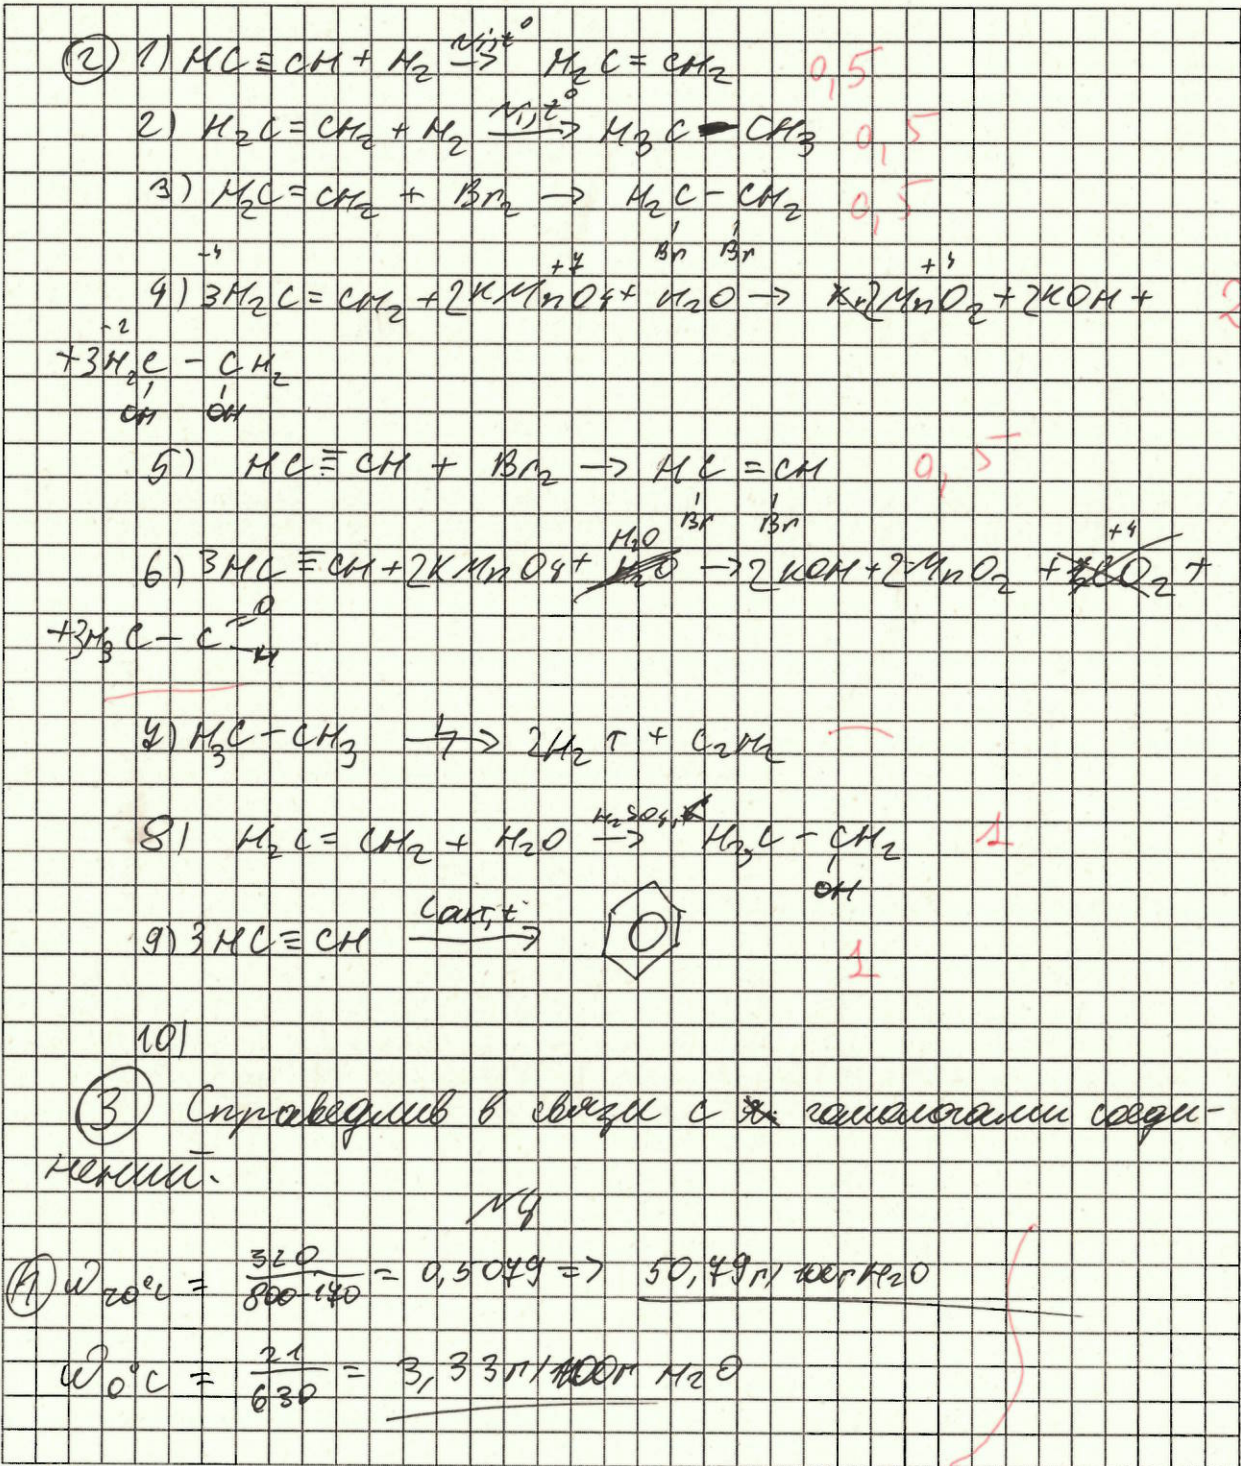 ② 1) HC≡CH + H₂ →(Ni, t°) H₂C=CH₂ 0,5
2) H₂C=CH₂ + H₂ →(Ni, t°) H₃C-CH₃ 0,5
3) H₂C=CH₂ + Br₂ → H₂C-CH₂ 0,5
Br Br
-4 +7 +4
4) 3H₂C=CH₂ + 2KMnO₄ + H₂O → 2MnO₂ + 2KOH + 2
-2
+3H₂C - CH₂
OH OH
5) HC≡CH + Br₂ → HC=CH 0,5
Br Br
H₂O +4
6) 3HC≡CH + 2KMnO₄ + → 2KOH + 2MnO₂ + +
+3H₃C - C =O
-H
7) H₃C-CH₃ → 2H₂↑ + C₂H₂ —
8) H₂C=CH₂ + H₂O →(H₂SO₄,) H₃C - CH₂ 1
OH
9) 3HC≡CH →(Cакт, t) 1
10)
③ Справедлив в связи с гомологами соеди-
нений.
№4
① W₇₀°C = 320/(800-170) = 0,5079 => 50,79г/100г H₂O
W₀°C = 21/630 = 3,33г/100г H₂O